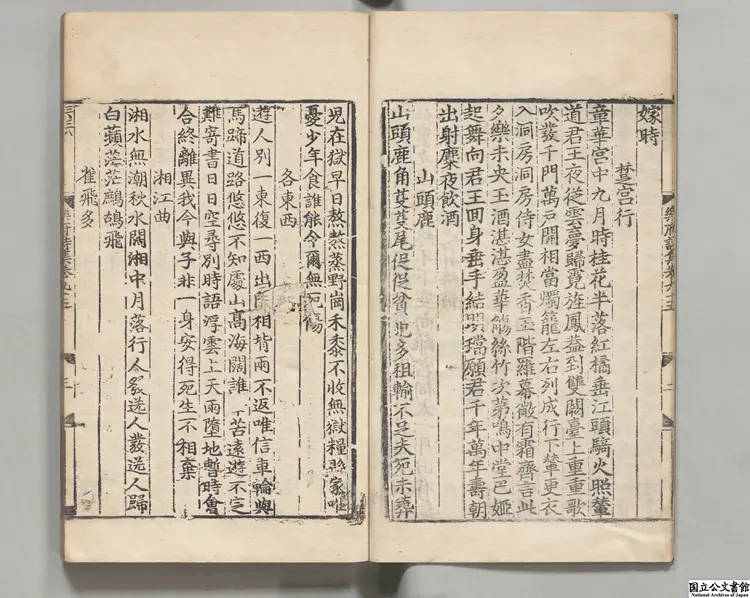 嫁時
楚宮行
章華宮中九月時桂花半落紅橘垂江頭騎火照輦
道君王夜從雲夢歸霓旌鳳蓋到雙闕臺上重重歌
吹發千門萬戶開相當燭籠左右列成行下輦更衣
入洞房洞房侍女盡焚香玉階羅幕微有霜齊言此
夕樂未央玉酒湛湛盈華觴絲竹次第鳴中堂巴姬
起舞向君王回身垂手結明璫願君千年萬年壽朝
出射麋夜飲酒
山頭鹿
山頭鹿角芟芟尾促促貧兒多租輸不足夫死未葬
兒在獄早日熬熬蒸野岡禾黍不收無獄糧縣家唯
憂少年食誰能令爾無死傷
各東西
遊人別一東復一西出門相背兩不返唯信車輪與
馬蹄道路悠悠不知處山高海闊誰苦遠遊不定
難寄書日日空尋別時語浮雲上天雨墮地暫時會
合終離異我今與子非一身安得死生不相棄
湘江曲
湘水無潮秋水闊湘中月落行人發送人發送人歸
白蘋茫茫鷓鴣飛
雀飛多
国立公文書館
National Archives of Japan